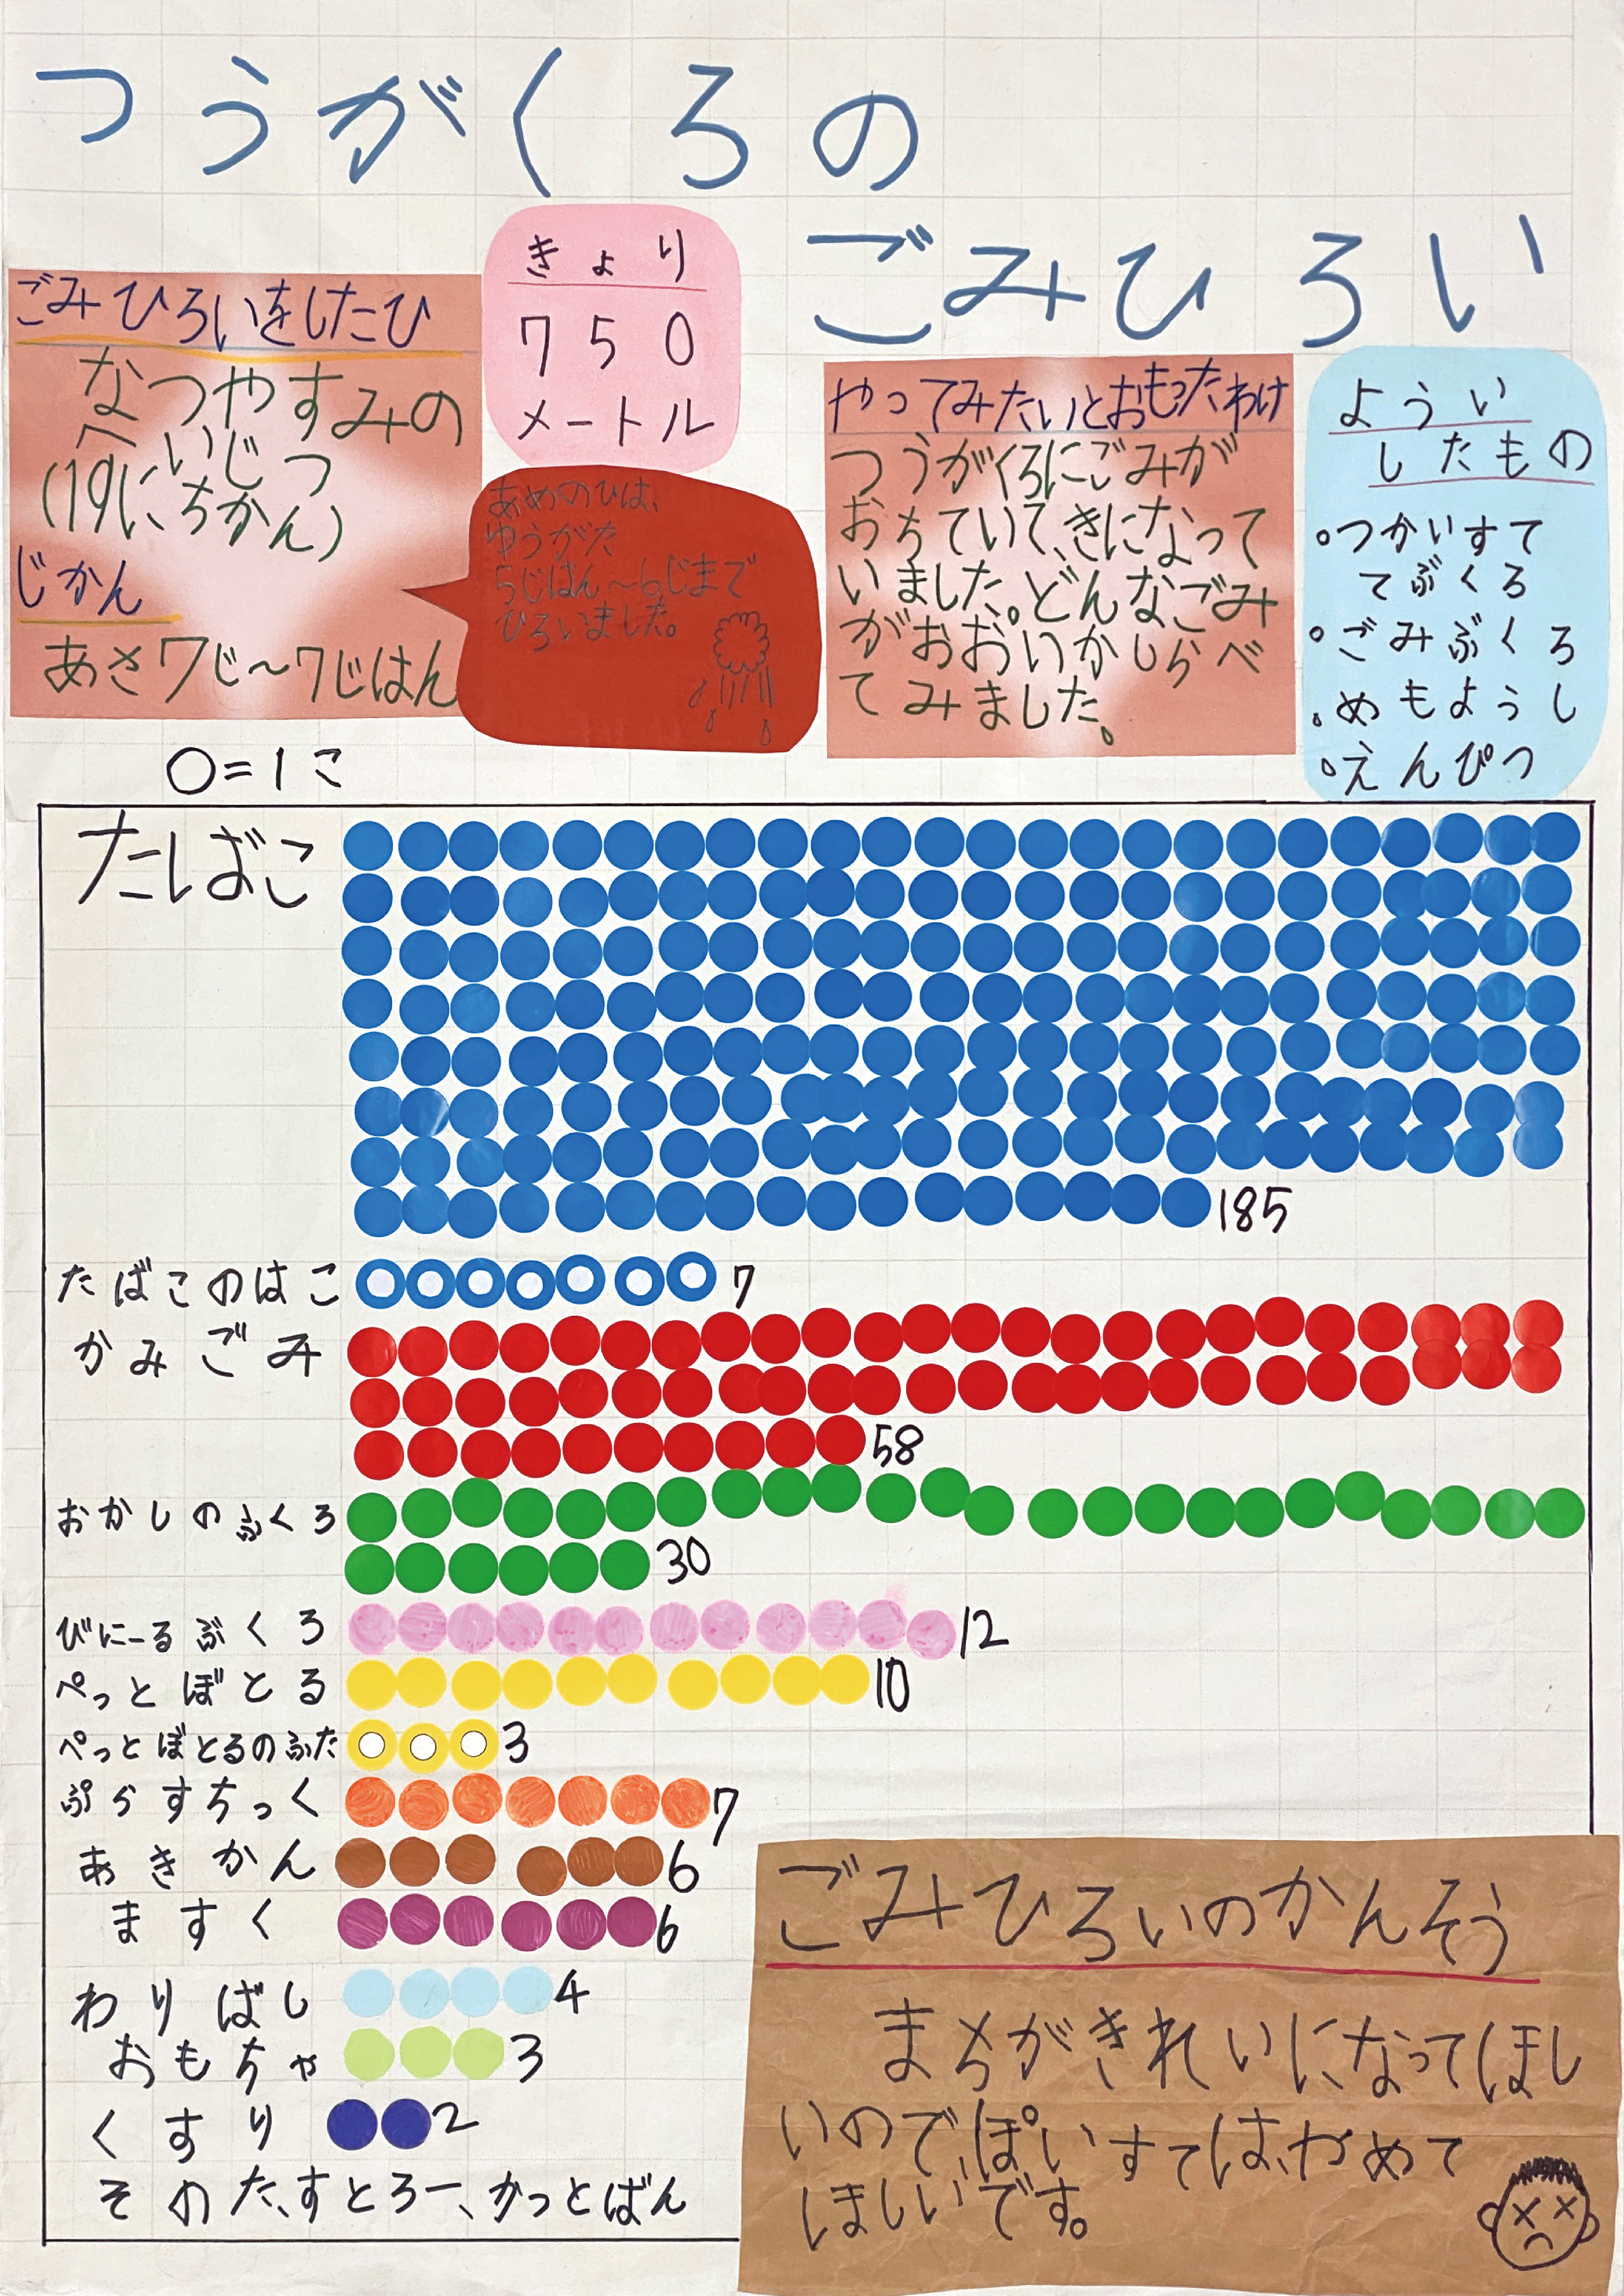 つうがくろの
ごみひろい
ごみひろいをしたひ
なつやすみの
へいじつ
(19にちかん)
じかん
あさ7じ〜7じはん
きょり
750
メートル
あめのひは、
ゆうがた
5じはん〜6じまで
ひろいました。
やってみたいとおもったわけ
つうがくろにごみが
おちていて、きになって
いました。どんなごみ
がおおいかしらべ
てみました。
ようい
したもの
・つかいすて
てぶくろ
・ごみぶくろ
・めもようし
・えんぴつ
○=1こ
たしばこ
185
たばこのはこ 7
かみごみ
58
おかしのふくろ
30
びにーるぶくろ 12
ぺっとぼとる 10
ぺっとぼとるのふた 3
ぷらすちっく 7
あきかん 6
ますく 6
わりばし 4
おもちゃ 3
くすり 2
そのた、すとろー、かっとばん
ごみひろいのかんそう
まちがきれいになってほし
いので、ぽいすては、やめて
ほしいです。